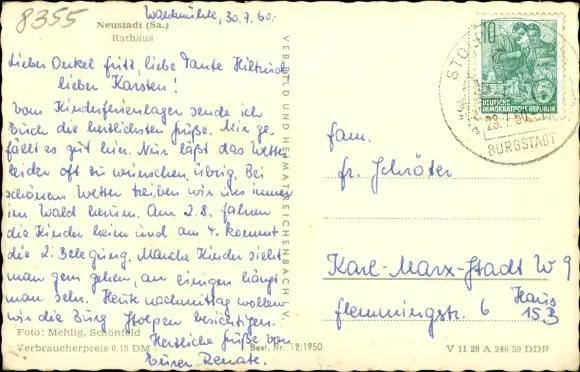 8355
Waldmühle, 30.7.60.
Neustadt (Sa.)
Rathaus
Lieber Onkel Fritz, liebe Tante Hiltrud
lieber Karsten!
Vom Kinderferienlager sende ich
Euch die herzlichsten Grüße. Mir ge-
fällt es gut hier. Nur läßt das Wetter
leider oft zu wünschen übrig. Bei
schönem Wetter treiben wir uns immer
im Wald herum. Am 2.8. fahren
die Kinder heim und am 4. kommt
die 2. Belegung. Manche Kinder sieht
man gern gehen, an einigen hängt
man sehr. Heute nachmittag wollen
wir die Burg Stolpen besichtigen.
Herzliche Grüße von
Eurer Renate.
Foto: Mehlig, Schönfeld
Verbraucherpreis 0,15 DM
Best. Nr. 12/1950
VEB BILD UND HEIMAT REICHENBACH I. V.
10
DEUTSCHE
DEMOKRATISCHE REPUBLIK
STOLPEN
29.7.60
BURGSTADT
Fam.
Fr. Schröter
Karl-Marx-Stadt W 9
Flemmingstr. 6 Haus
15B
V 11 28 A 246/59 DDR